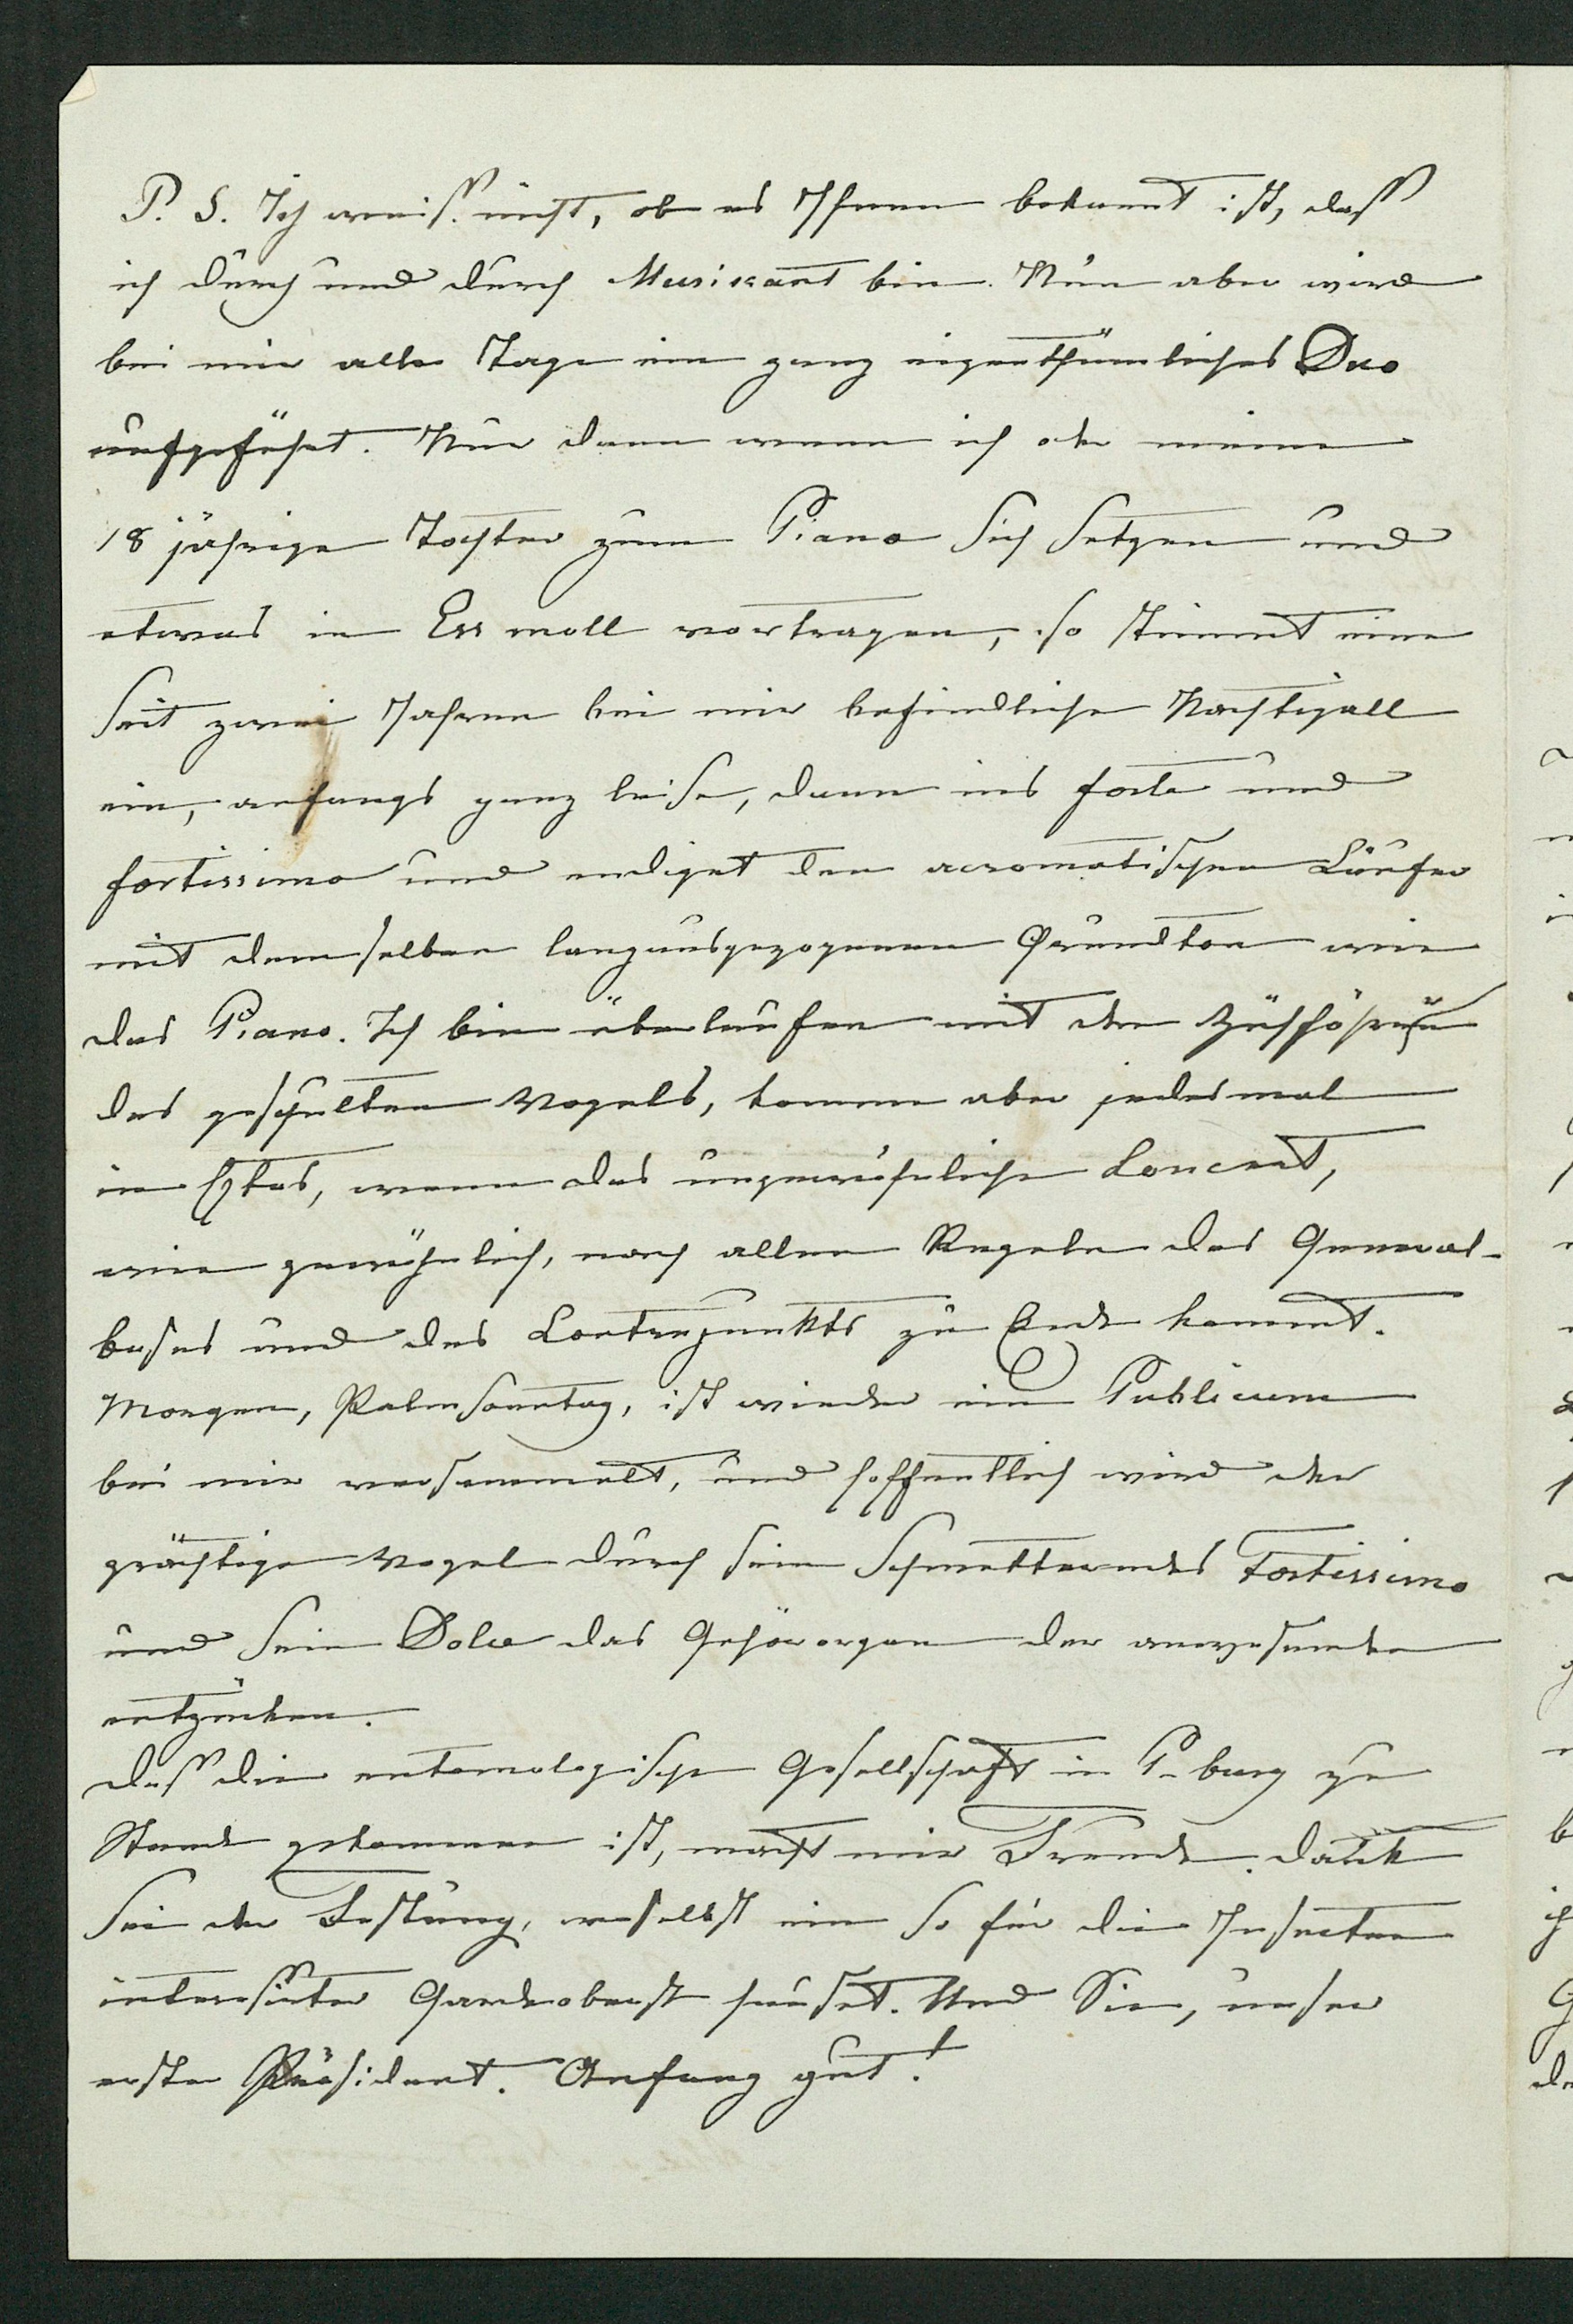 P. S. Ich weiß nicht, ob es Ihnen bekannt ist, daß
ich durch und durch Musikant bin. Nun aber wird
bei mir alle Tage ein ganz eigenthümliches Duo
aufgeführt. Nur dann wenn ich oder meine
18 jährige Tochter zum Piano sich setzen und
etwas in Ess moll vortragen, so stimmt eine
seit zwei Jahren bei mir befindliche Nachtigall
ein, anfangs ganz leise, dann ins forte und
fortissimo und endiget den acromatischen Läufer
mit demselben langausgezogenen Grundton wie
das Piano. Ich bin überlaufen mit den Zuhörern
des geschulten Vogels, komme aber jedesmal
in Extas, wenn das ungewöhnliche Concert,
wie gewöhnlich, nach allen Regeln des General-
basses und des Contrapunkts zu Ende kommt.
Morgen, Palmsonntag, ist wieder ein Publicum
bei mir versammelt, und hoffentlich wird der
prächtige Vogel durch sein schmetterndes Fortissimo
und sein Dolce das Gehörorgan der anwesenden
entzücken.
Daß die entomologische Gesellschaft in P-burg zu
Stande gekommen ist, macht mir Freude. Dank
sei der Festung, woselbst ein so für die Insecten
interessirter Gardeoberst hauset. Und Sie, unser
erster Präsident. Anfang gut!